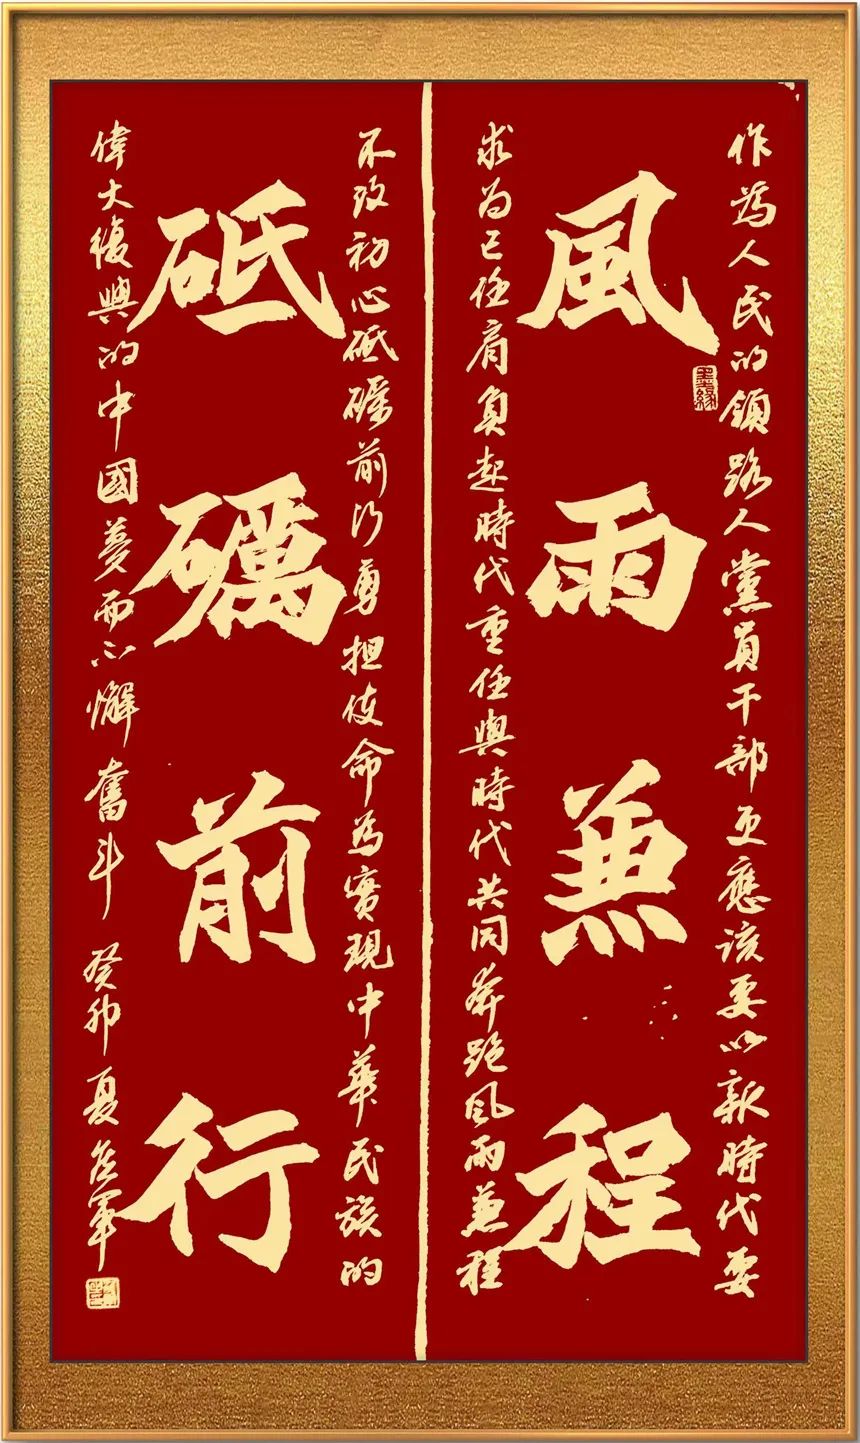 作為人民的領路人黨員干部更應該要以新時代要
風雨兼程
墨緣
求为己任肩負起時代重任與時代共同奔跑风雨兼程
不改初心砥礪前行勇担使命為實現中華民族的
砥礪前行
偉大復興的中國夢而不懈奮斗 癸卯夏軍